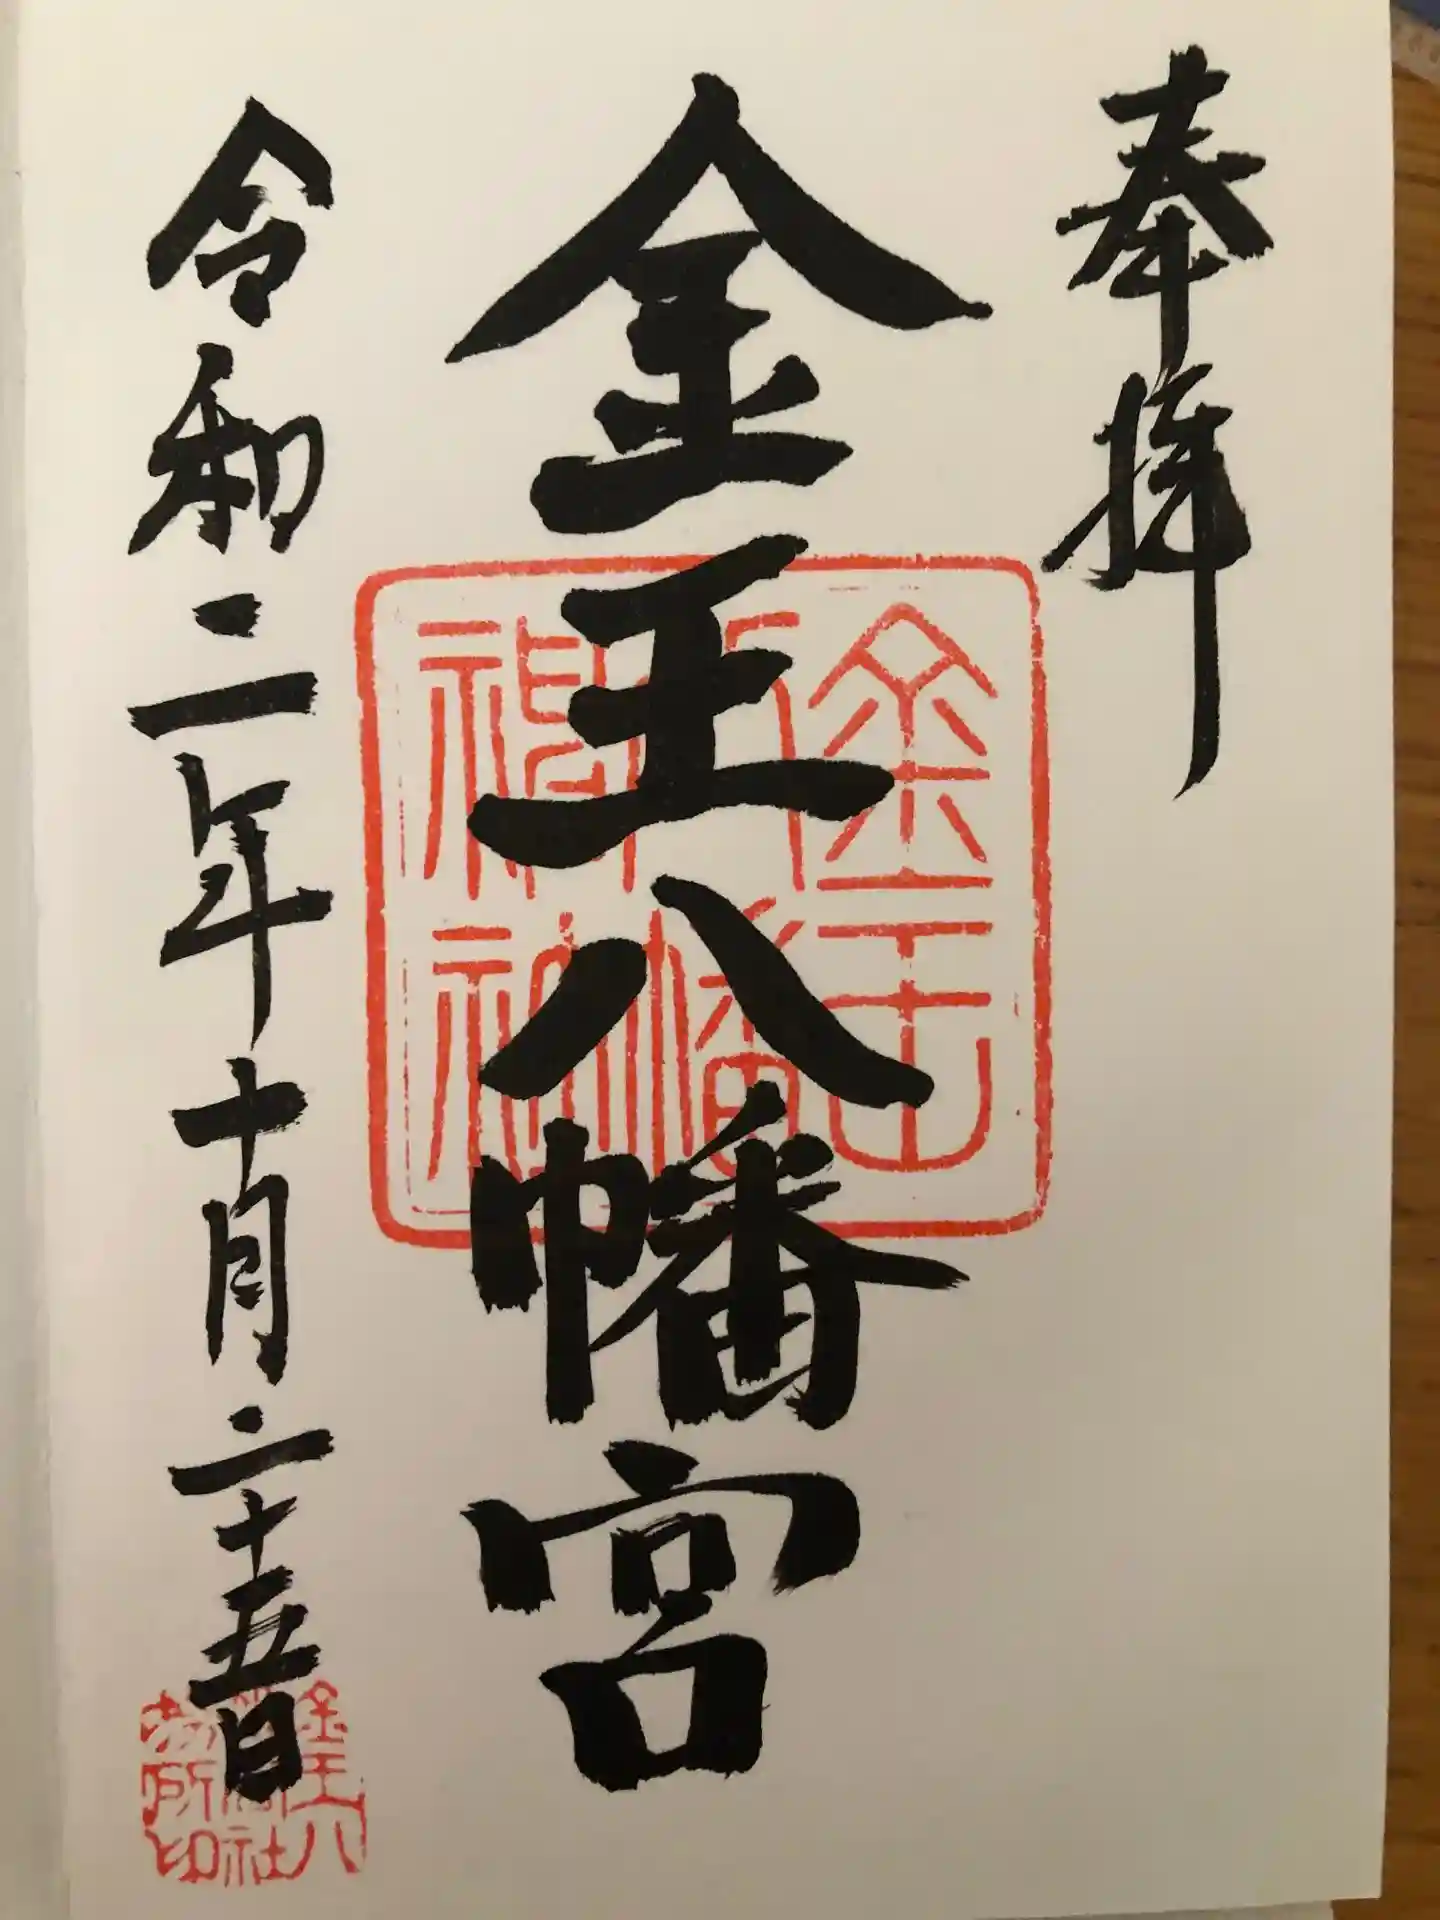 奉拝
金王八幡宮
令和二年十月二十五日
金王
八幡
神
金王八
社
務所印